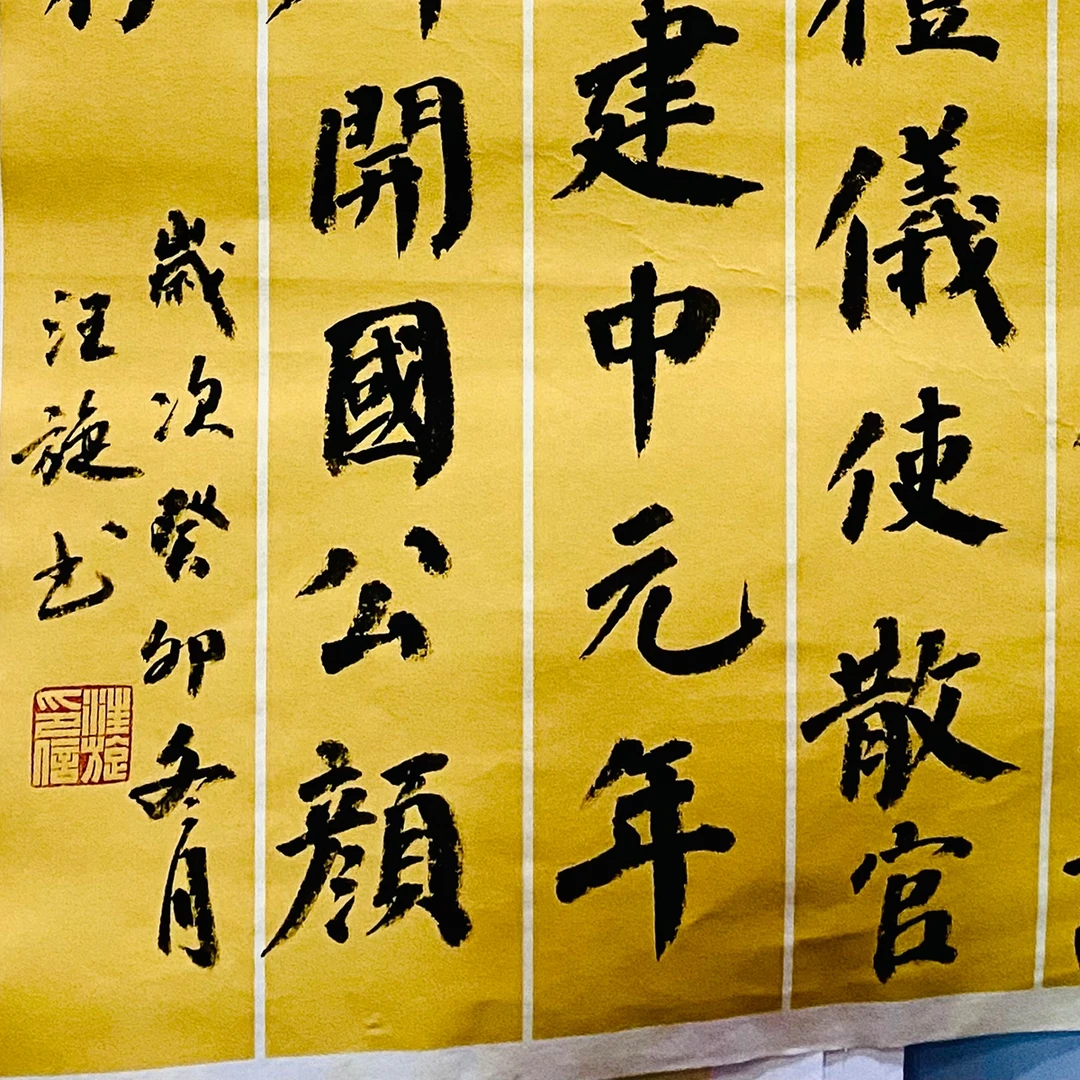 儀使散官
建中元年
開國公顏
歲次癸卯冬月
汪旋书
汪旋
印信